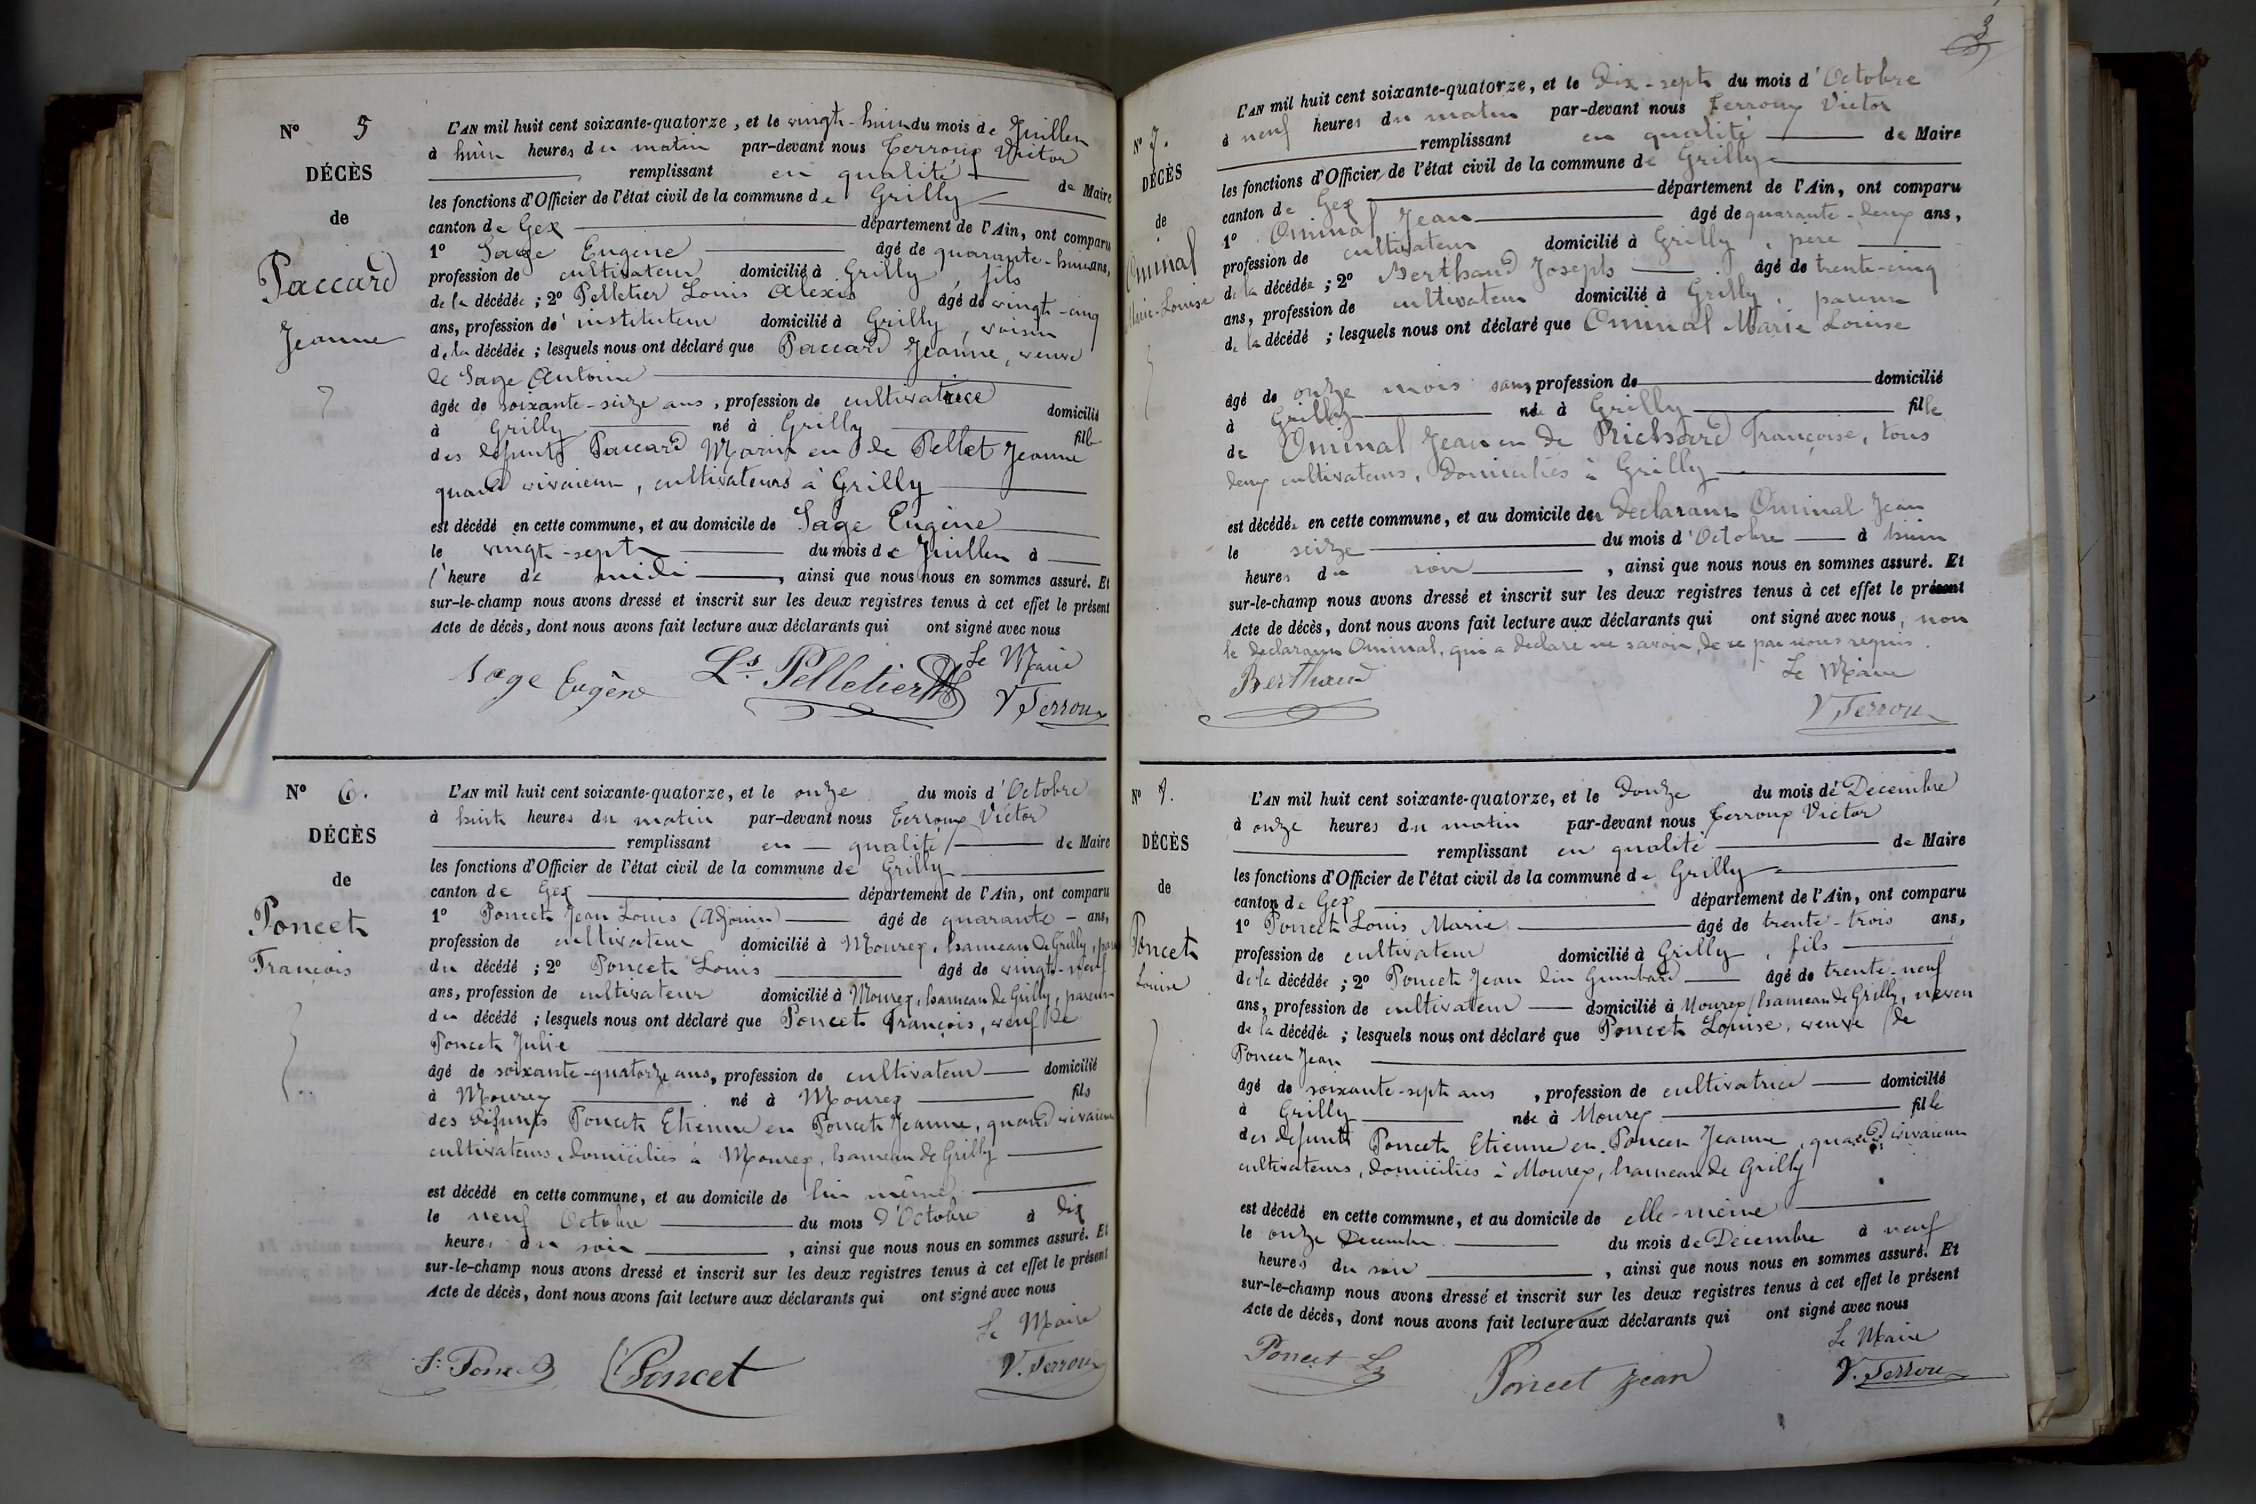 N° 5
DÉCÈS
de
Paccard
Jeanne
L'AN mil huit cent soixante-quatorze, et le vingt-huit du mois de Juillet
à huit heures du matin par-devant nous Terroux Victor
remplissant en qualité de Maire
les fonctions d'Officier de l'état civil de la commune de Grilly
canton de Gex département de l'Ain, ont comparu
1° Sage Eugène âgé de quarante-huit ans,
profession de cultivateur domicilié à Grilly, fils
de la décédée ; 2° Pelletier Louis Alexis âgé de vingt-cinq
ans, profession de instituteur domicilié à Grilly, voisin
de la décédée ; lesquels nous ont déclaré que Paccard Jeanne, veuve
de Sage Antoine
âgée de soixante-seize ans, profession de cultivatrice domicilié
à Grilly né à Grilly fille
des défunts Paccard Marin et de Pellet Jeanne
quand vivaient, cultivateurs à Grilly
est décédé en cette commune, et au domicile de Sage Eugène
le vingt-sept du mois de Juillet à
l'heure de midi, ainsi que nous nous en sommes assuré. Et
sur-le-champ nous avons dressé et inscrit sur les deux registres tenus à cet effet le présent
Acte de décès, dont nous avons fait lecture aux déclarants qui ont signé avec nous
Le Maire
Sage Eugène Ls. Pelletier V. Terroux
N° 6.
DÉCÈS
de
Poncet
François
L'AN mil huit cent soixante-quatorze, et le onze du mois d'Octobre
à huit heures du matin par-devant nous Terroux Victor
remplissant en qualité de Maire
les fonctions d'Officier de l'état civil de la commune de Grilly
canton de Gex département de l'Ain, ont comparu
1° Poncet Jean Louis (Adjoint) âgé de quarante ans,
profession de cultivateur domicilié à Mourex, hameau de Grilly,
du décédé ; 2° Poncet Louis âgé de vingt-neuf
ans, profession de cultivateur domicilié à Mourex, hameau de Grilly, parent
du décédé ; lesquels nous ont déclaré que Poncet François, veuf de
Poncet Julie
âgé de soixante-quatorze ans, profession de cultivateur domicilié
à Mourex né à Mourex fils
des défunts Poncet Etienne et Poncet Jeanne, quand vivaient
cultivateurs, domiciliés à Mourex, hameau de Grilly
est décédé en cette commune, et au domicile de lui même
le neuf Octobre du mois d'Octobre à dix
heures du soir, ainsi que nous nous en sommes assuré. Et
sur-le-champ nous avons dressé et inscrit sur les deux registres tenus à cet effet le présent
Acte de décès, dont nous avons fait lecture aux déclarants qui ont signé avec nous
Le Maire
Poncet Poncet V. Terroux
3
N° 7.
DÉCÈS
de
Ominal
Marie-Louise
L'AN mil huit cent soixante-quatorze, et le Dix-sept du mois d'Octobre
à neuf heures du matin par-devant nous Terroux Victor
remplissant en qualité de Maire
les fonctions d'Officier de l'état civil de la commune de Grilly
canton de Gex département de l'Ain, ont comparu
1° Ominal Jean âgé de quarante-deux ans,
profession de cultivateur domicilié à Grilly, père
de la décédée ; 2° Berthaud Joseph âgé de trente-cinq
ans, profession de cultivateur domicilié à Grilly, parent
de la décédé ; lesquels nous ont déclaré que Ominal Marie Louise
âgé de onze mois sans profession de domicilié
à Grilly née à Grilly fille
de Ominal Jean et de Richard Françoise, tous
deux cultivateurs, domiciliés à Grilly
est décédée en cette commune, et au domicile du déclarant Ominal Jean
le seize du mois d'Octobre à huit
heures du soir, ainsi que nous nous en sommes assuré. Et
sur-le-champ nous avons dressé et inscrit sur les deux registres tenus à cet effet le présent
Acte de décès, dont nous avons fait lecture aux déclarants qui ont signé avec nous, non
le déclarant Ominal, qui a déclaré ne savoir, de ce par nous requis.
Le Maire
Berthaud V. Terroux
N° 8.
DÉCÈS
de
Poncet
Louise
L'AN mil huit cent soixante-quatorze, et le Douze du mois de Décembre
à onze heures du matin par-devant nous Terroux Victor
remplissant en qualité de Maire
les fonctions d'Officier de l'état civil de la commune de Grilly
canton de Gex département de l'Ain, ont comparu
1° Poncet Louis Marie âgé de trente-trois ans,
profession de cultivateur domicilié à Grilly, fils
de la décédée ; 2° Poncet Jean âgé de trente-neuf
ans, profession de cultivateur domicilié à Mourex, hameau de Grilly, neveu
de la décédée ; lesquels nous ont déclaré que Poncet Louise, veuve de
Poncet Jean
âgé de soixante-sept ans, profession de cultivatrice domicilié
à Grilly née à Mourex fille
des défunts Poncet Etienne et Poncet Jeanne, quand vivaient
cultivateurs, domiciliés à Mourex, hameau de Grilly
est décédé en cette commune, et au domicile de elle-même
le onze Décembre du mois de Décembre à neuf
heures du soir, ainsi que nous nous en sommes assuré. Et
sur-le-champ nous avons dressé et inscrit sur les deux registres tenus à cet effet le présent
Acte de décès, dont nous avons fait lecture aux déclarants qui ont signé avec nous
Le Maire
Poncet Ls Poncet Jean V. Terroux